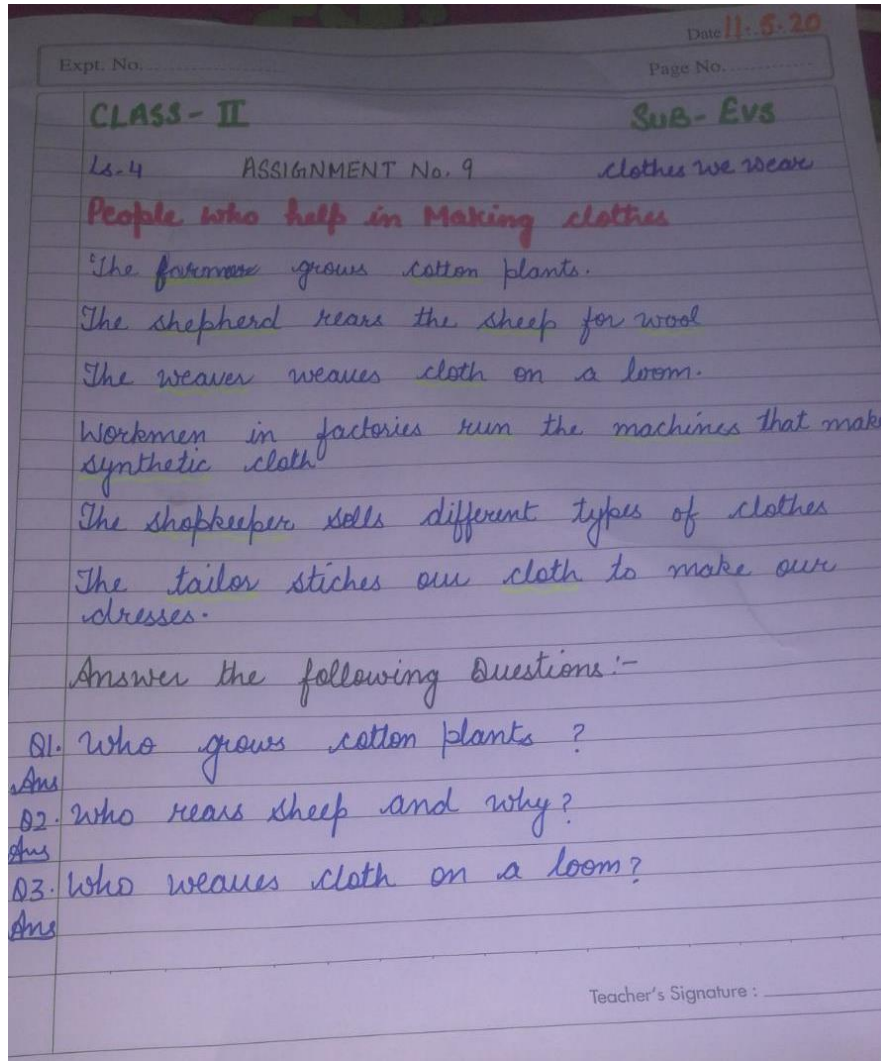 Date 11.5.20
Expt. No.
Page No.
CLASS - II SUB- EVS
Ls-4 ASSIGNMENT No. 9 clothes we wear
People who help in Making clothes
The farmer grows cotton plants.
The shepherd rears the sheep for wool
The weaver weaves cloth on a loom.
Workmen in factories run the machines that make
synthetic cloth
The shopkeeper sells different types of clothes
The tailor stiches our cloth to make our
dresses.
Answer the following Questions:-
Q1. Who grows cotton plants ?
Ans
Q2. Who rears sheep and why?
Ans
Q3. Who weaves cloth on a loom?
Ans
Teacher's Signature :